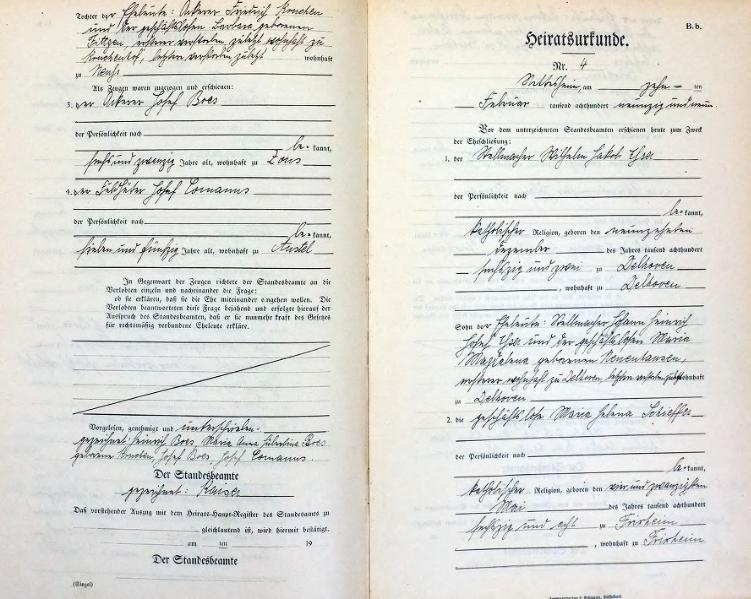 Tochter der Eheleute: Ackerer Friedrich
und der geschäftslosen Barbara geborenen
ersterer verstorben, zuletzt wohnhaft zu
letztere verstorben, zuletzt wohnhaft
zu Neuß
Als Zeugen waren zugezogen und erschienen:
3. der Ackerer Josef Boes
der Persönlichkeit nach
be-kannt,
sechs und zwanzig Jahre alt, wohnhaft zu Zons
4. der Feldhüter Josef Comanns
der Persönlichkeit nach
be-kannt,
sieben und fünfzig Jahre alt, wohnhaft zu Anstel
In Gegenwart der Zeugen richtete der Standesbeamte an die
Verlobten einzeln und nacheinander die Frage:
ob sie erklären, daß sie die Ehe miteinander eingehen wollen. Die
Verlobten beantworteten diese Frage bejahend und erfolgte hierauf der
Ausspruch des Standesbeamten, daß er sie nunmehr kraft des Gesetzes
für rechtmäßig verbundene Eheleute erkläre.
Vorgelesen, genehmigt und unterschrieben.
gezeichnet: Heinrich Boes, Maria Anna Hubertina Boes
geborene Josef Boes, Josef Comanns.
Der Standesbeamte
gezeichnet: Kaiser
Daß vorstehender Auszug mit dem Heirats-Haupt-Register des Standesamts zu
gleichlautend ist, wird hiermit bestätigt.
am ten 19
Der Standesbeamte
(Siegel)
B.b.
Heiratsurkunde.
Nr. 4
am zehn-ten
Februar tausend achthundert neunzig und neun
Vor dem unterzeichneten Standesbeamten erschienen heute zum Zweck
der Eheschließung:
1. der Stellmacher Wilhelm Jakob
der Persönlichkeit nach
be-kannt,
katholischer Religion, geboren den neunzehnten
Dezember des Jahres tausend achthundert
sechszig und zwei zu Delhoven
, wohnhaft zu Delhoven
Sohn der Eheleute: Stellmacher Johann Heinrich
Josef und der geschäftslosen Maria
Magdalena geborenen Neuenhausen,
ersterer wohnhaft zu Delhoven, letztere verstorben, zuletzt wohnhaft
zu Delhoven
2. die geschäftslose Maria Helena
der Persönlichkeit nach
be-kannt,
katholischer Religion, geboren den vier und zwanzigsten
Mai des Jahres tausend achthundert
sechszig und acht zu Frixheim
, wohnhaft zu Frixheim